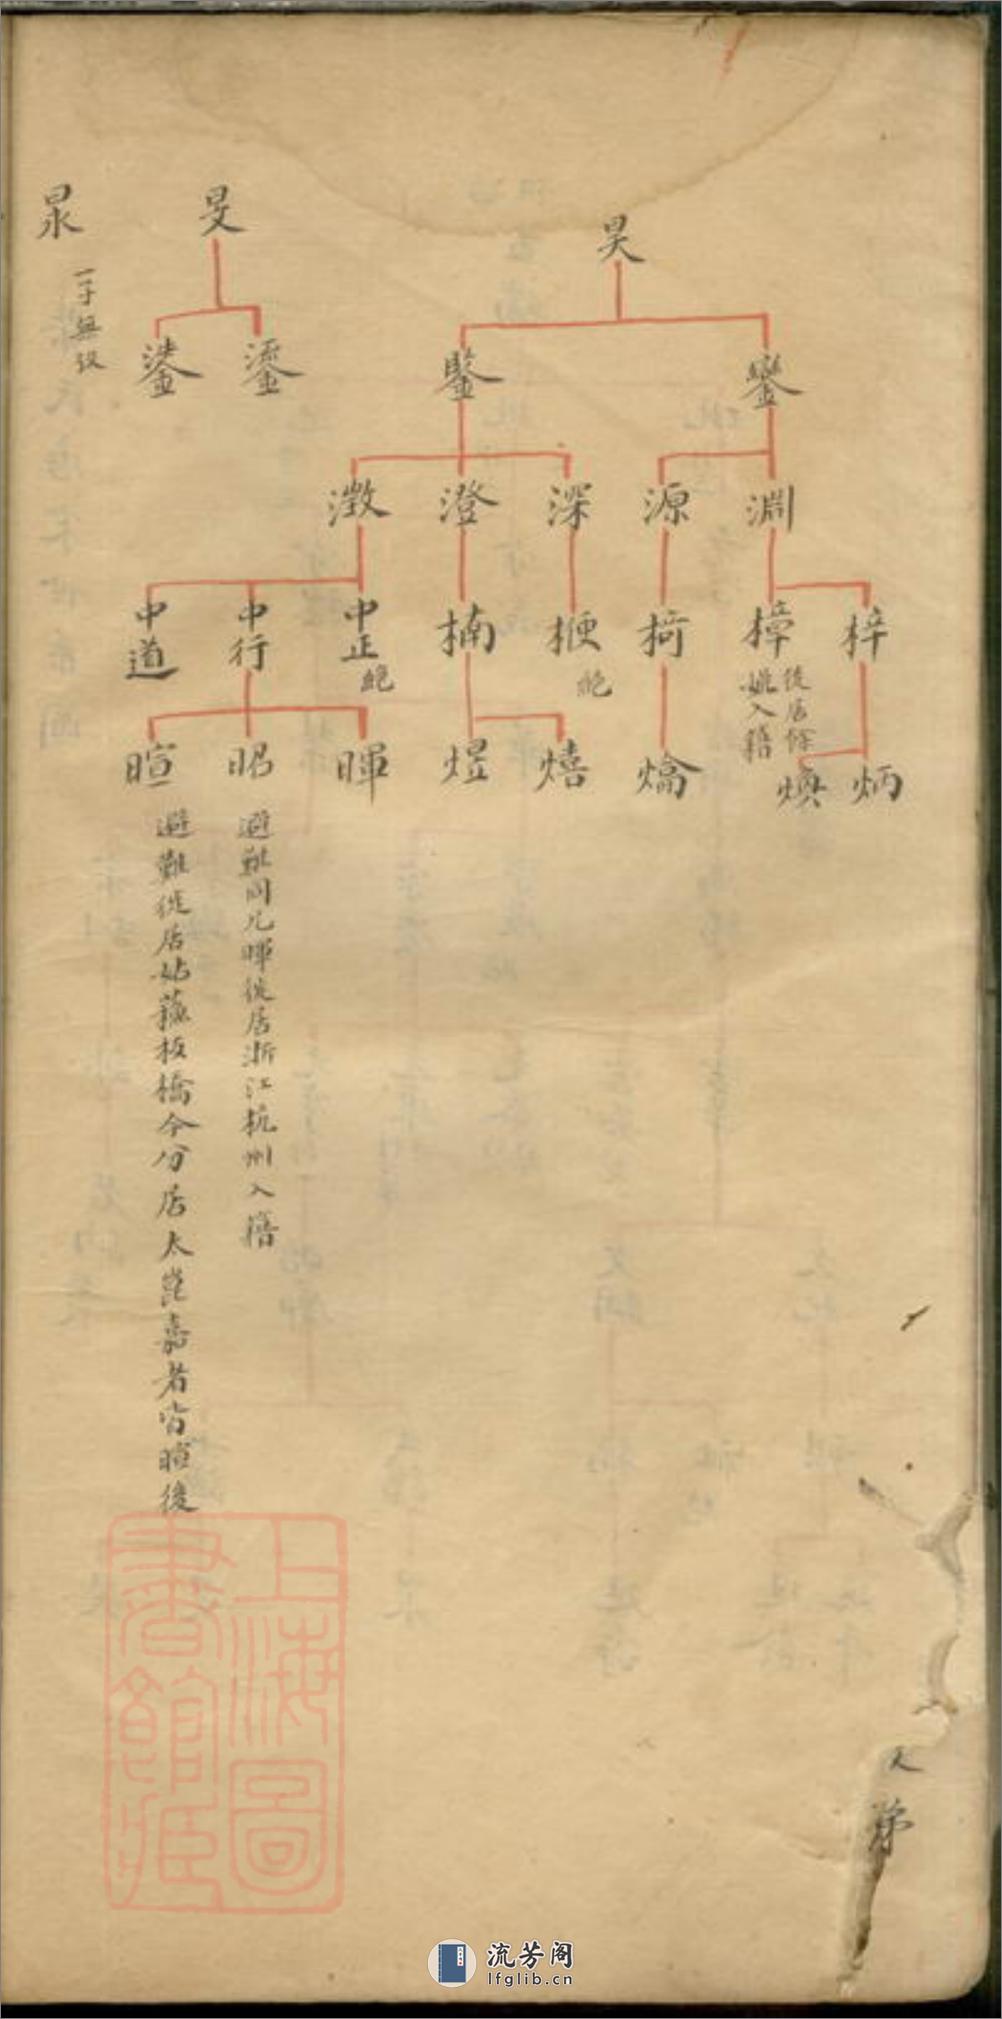 昊
旻
泉
一子無後
鑾
鑒
鎏
淵
源
深
澄
澂
梓
樟
徙居餘
姚入籍
楠
梗
絕
中正
絕
中行
中道
炳
煥
熺
煜
暉
昭
暄
避難同兄暉徙居浙江杭州入籍
避難徙居姑蘇板橋今分居太崑嘉者皆暄後
上海圖
書館藏
流芳阁
lfglib.cn